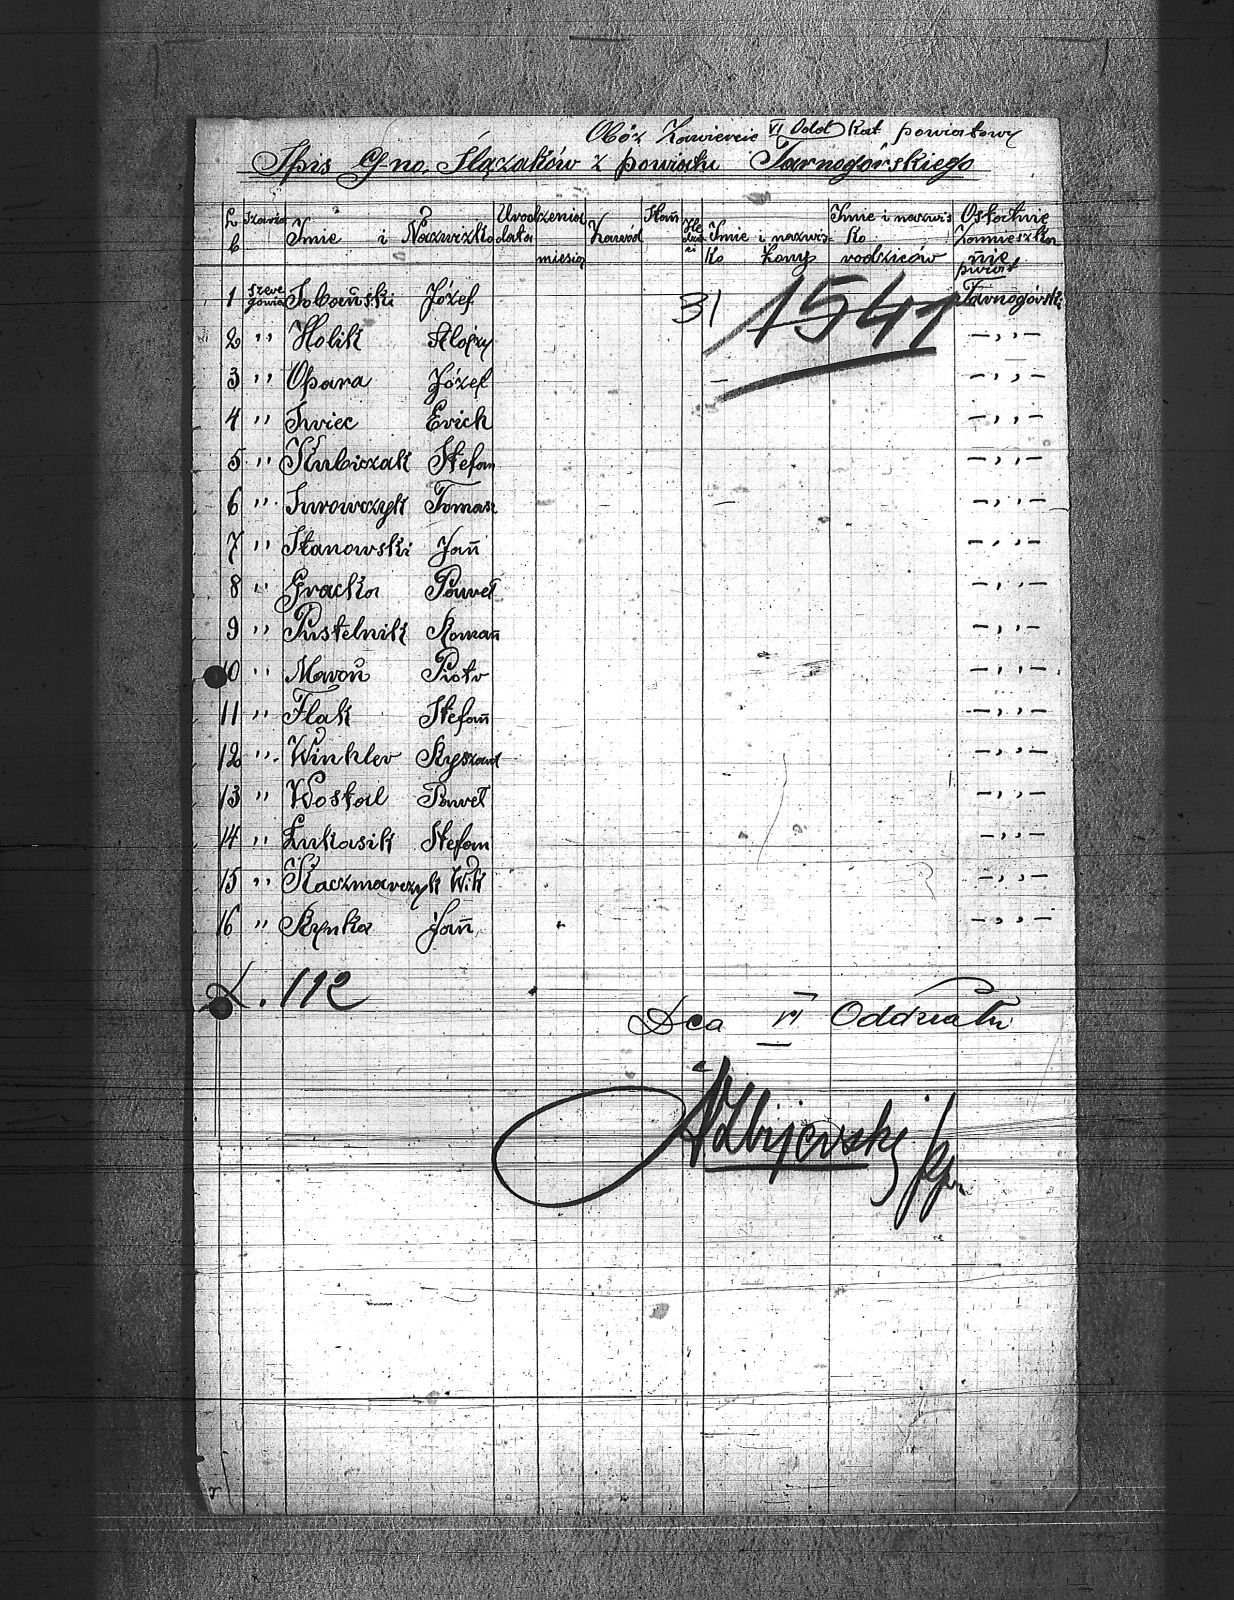 Obóz Zawiercie VI Odd Kat powiatowy
Spis G-no. Ślązaków z powiatu Tarnogórskiego
L b Szarża Imie i Nazwizko Urodzenia data miesiąc Zawód Stan Imie i nazwisko żony Imie i nazwisko rodziców Ostatnie zamieszkanie powiat
1 szeregowiec Sobański Józef 31 1541 Tarnogórski
2 " Holik Alojzy -,,-
3 " Opara Józef -,,-
4 " Świec Erich -,,-
5 " Kubiczak Stefan -,,-
6 " Jurowczyk Tomasz -,,-
7 " Stanowski Jan -,,-
8 " Gracka Paweł -,,-
9 " Pustelnik Roman -,,-
10 " Maroń Piotr -,,-
11 " Flak Stefan -,,-
12 " Winkler Ryszard -,,-
13 " Wostal Paweł -,,-
14 " Łukasik Stefan -,,-
15 " Kaczmarczyk Wik -,,-
16 " Rynka Jan -,,-
L. 112
Dca VI Oddziału